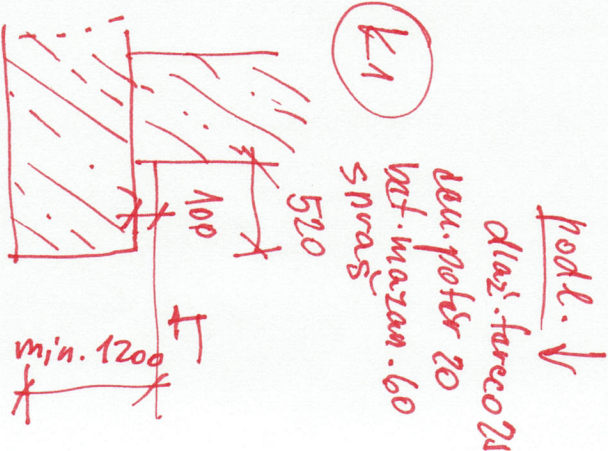 K1
podl. ↓
dlaž. taraco 25
cem. potěr 20
bet. mazan. 60
spraš
520
100
T
min. 1200